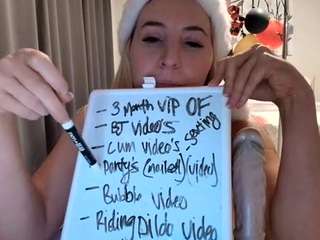 - 3 Month VIP OF
- BJ Video's
- Cum Video's - Sexting
- Panty's (mailed) (video)
- Bubble Video
- Riding Dildo Video